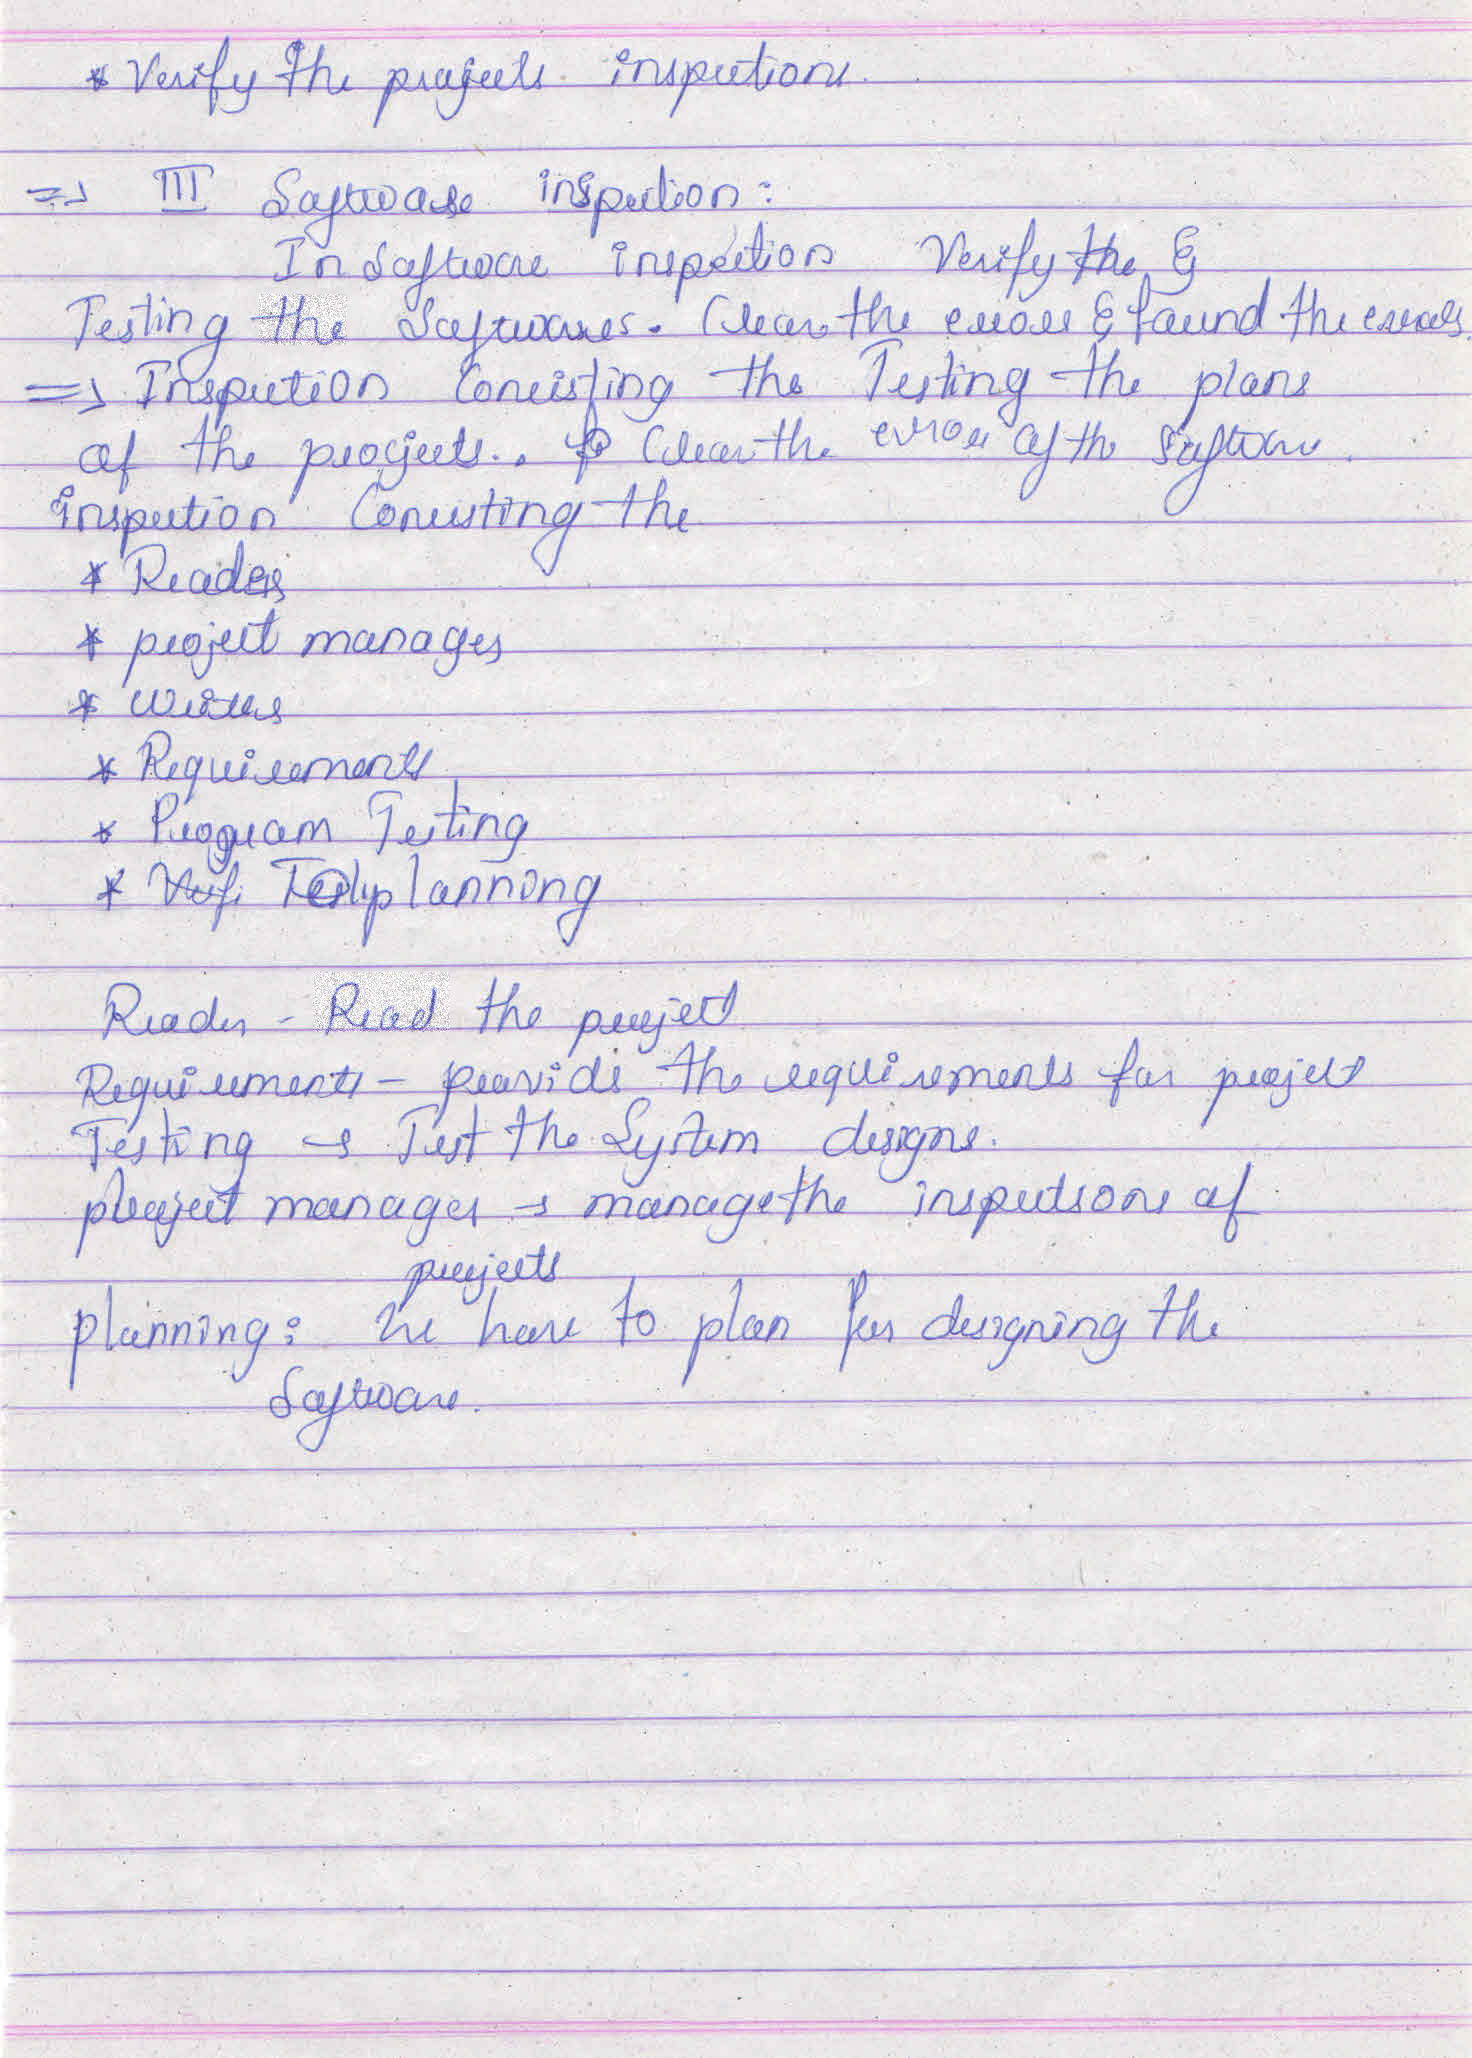 * Verify the projects inspections.
=> III Software inspection:
In Software inspection Verify the &
Testing the Softwares. Clear the errors & found the errors.
=> Inspection Consisting the Testing the plans
of the projects.. Clear the error of the Software.
inspection Consisting the
* Readers
* project manager
* Writers
* Requirements
* Program Testing
* planning
Reader - Read the project
Requirements - provide the requirements for project
Testing → Test the System designs.
project manager → manage the inspections of
projects
planning: we have to plan for designing the
Software.